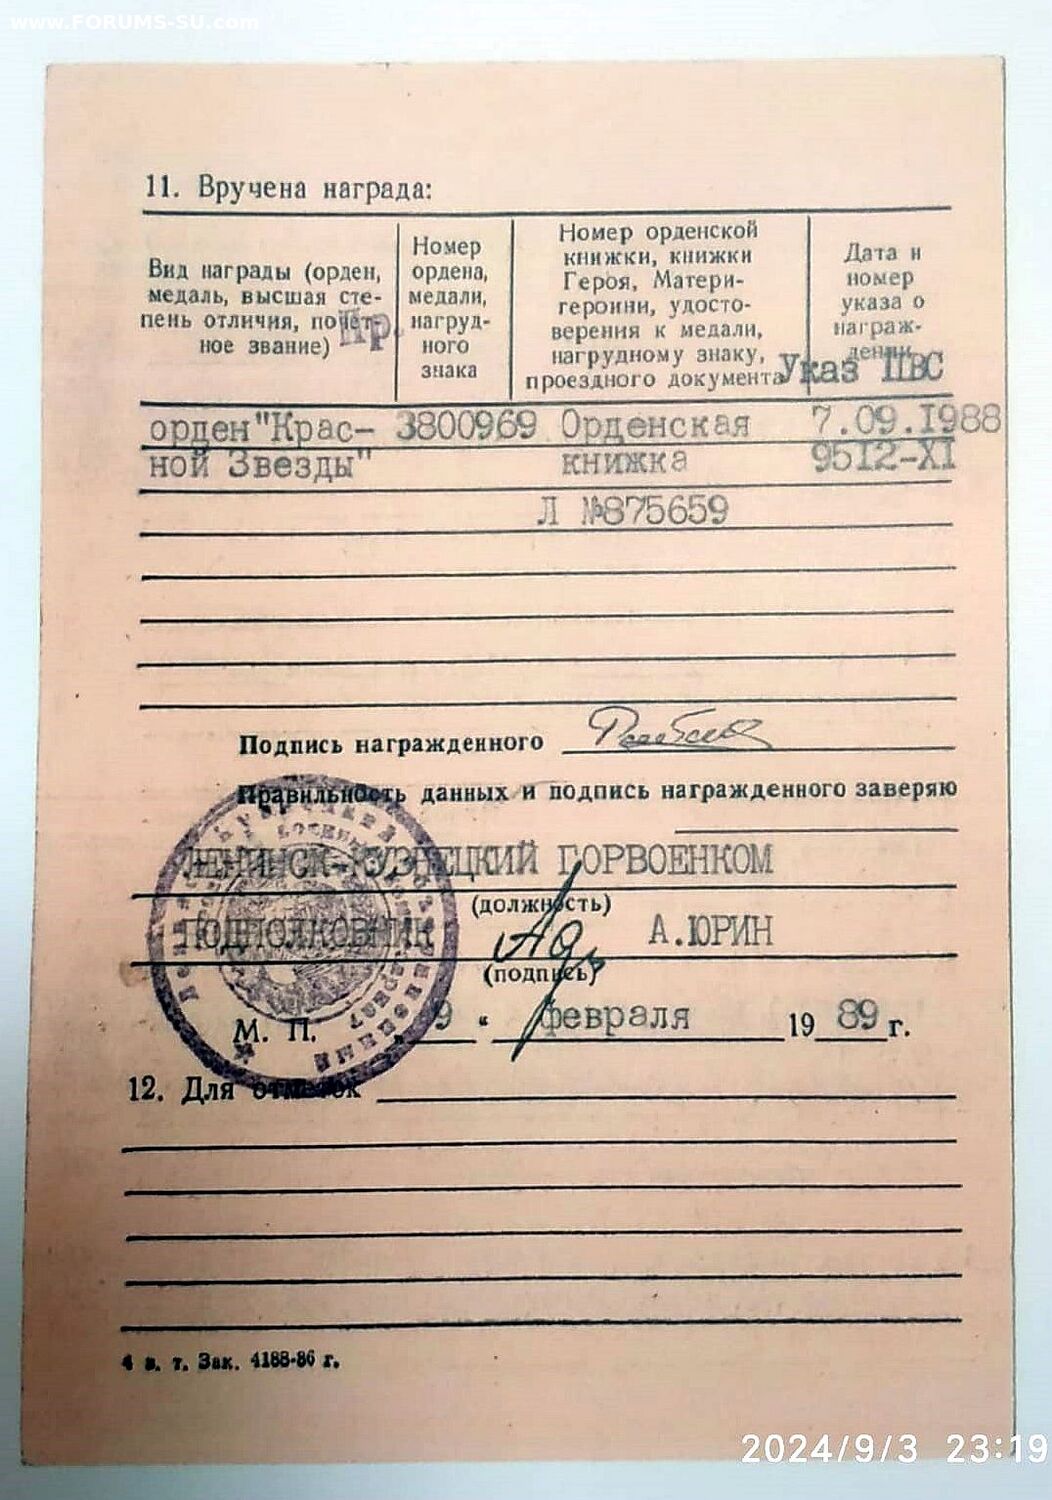 www.FORUMS-SU.com
11. Вручена награда:
Вид награды (орден,
медаль, высшая сте-
пень отличия, почет-
ное звание)
Пр.
Номер
ордена,
медали,
нагруд-
ного
знака
Номер орденской
книжки, книжки
Героя, Матери-
героини, удосто-
верения к медали,
нагрудному знаку,
проездного документа
Дата и
номер
указа о
награж-
дении
Указ ПВС
орден "Крас- 3800969 Орденская 7.09.1988
ной Звезды" книжка 9512-XI
Л №875659
Подпись награжденного
Правильность данных и подпись награжденного заверяю
ЛЕНИНСК-КУЗНЕЦКИЙ ГОРВОЕНКОМ
(должность)
ПОДПОЛКОВНИК А.ЮРИН
(подпись)
М. П. „ 9 “ февраля 19 89 г.
12. Для отметок
4 в. т. Зак. 4188-86 г.
2024/9/3 23:19